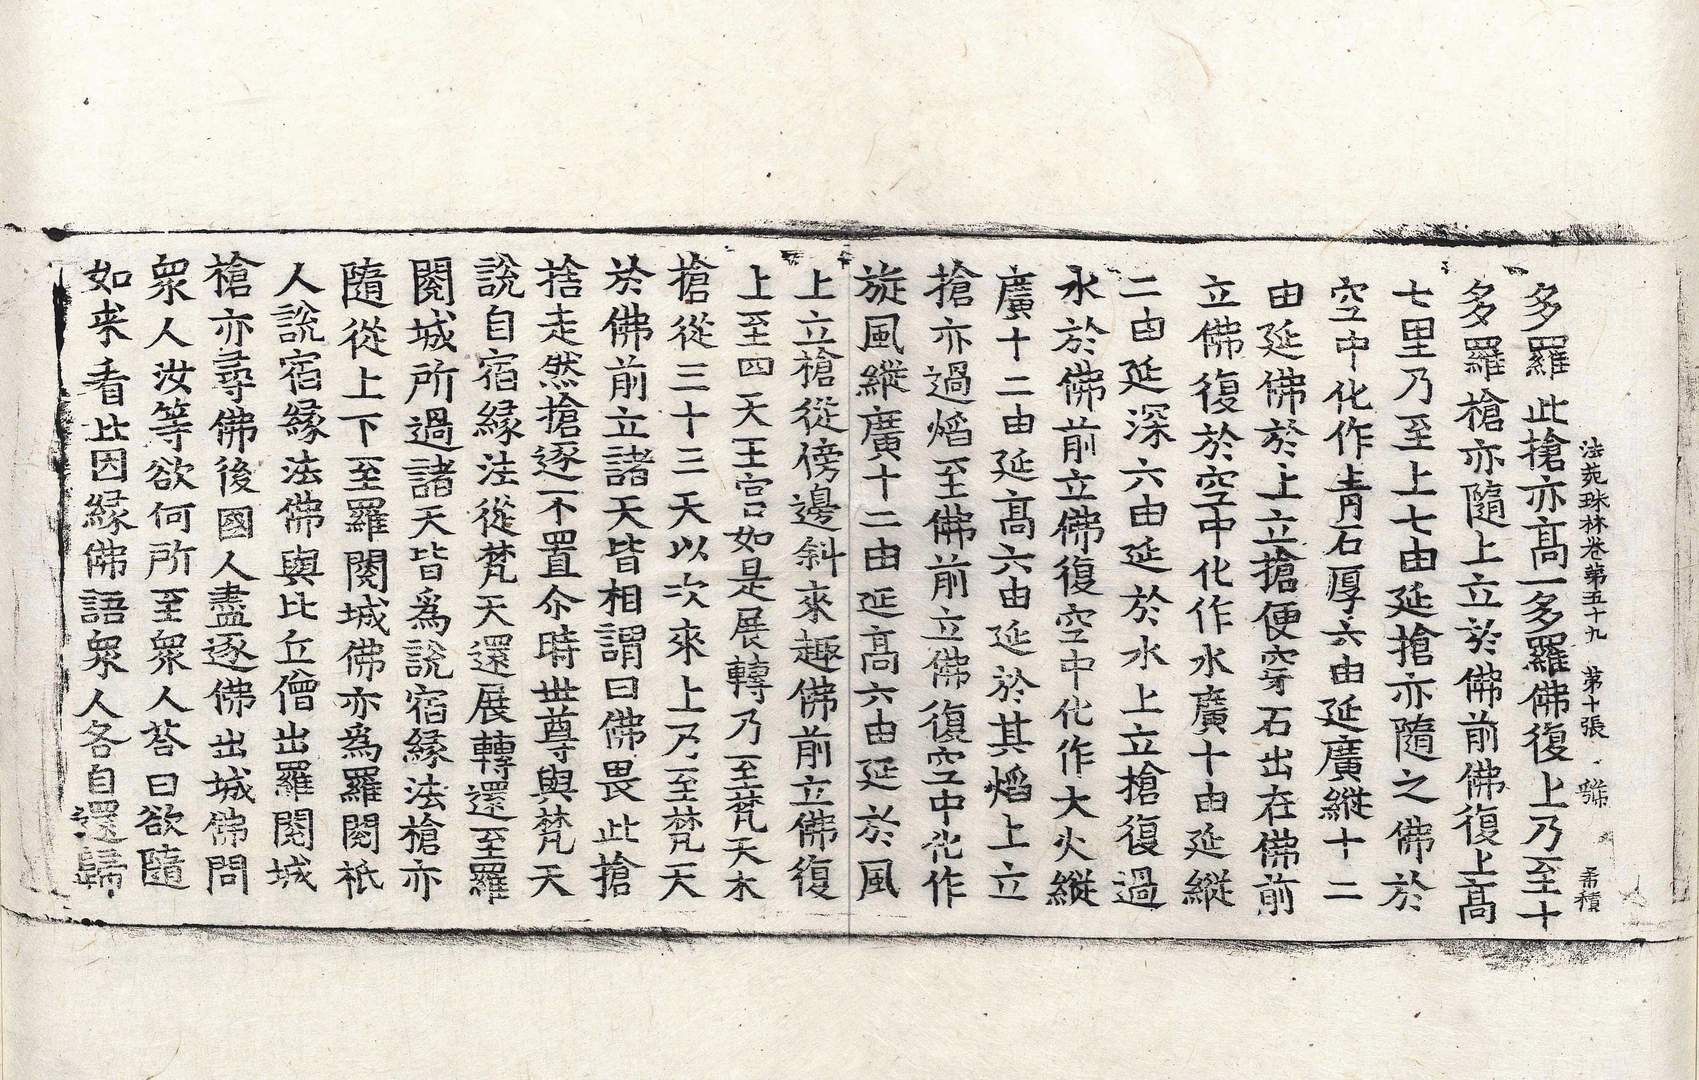 法苑珠林卷第五十九　第十張　號　希積
多羅此搶亦高一多羅佛復上乃至十
多羅槍亦隨上立於佛前佛復上高
七里乃至上七由延搶亦隨之佛於
空中化作青石厚六由延廣縱十二
由延佛於上立搶便穿石出在佛前
立佛復於空中化作水廣十由延縱
二由延深六由延於水上立搶復過
水於佛前立佛復空中化作大火縱
廣十二由延高六由延於其焰上立
搶亦過焰至佛前立佛復空中化作
旋風縱廣十二由延高六由延於風
上立槍從傍邊斜來趣佛前立佛復
上至四天王宮如是展轉乃至梵天木
搶從三十三天以次來上乃至梵天
於佛前立諸天皆相謂曰佛畏此搶
捨走然搶逐不置尒時世尊與梵天
說自宿緣法從梵天還展轉還至羅
閱城所過諸天皆爲說宿緣法槍亦
隨從上下至羅閱城佛亦爲羅閱祇
人說宿緣法佛與比丘僧出羅閱城
槍亦尋佛後國人盡逐佛出城佛問
衆人汝等欲何所至衆人荅曰欲隨
如来看此因緣佛語衆人各自還歸